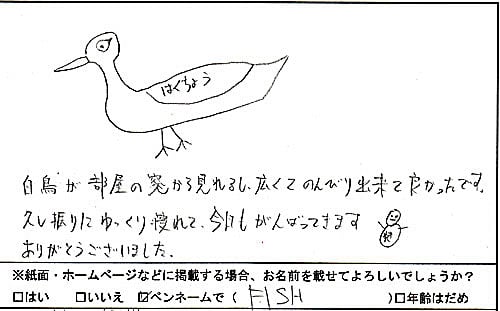 はくちょう
白鳥が部屋の窓から見れるし、広くてのんびり出来て良かったです。
久し振りにゆっくり寝れて、今日もがんばってきます
ありがとうございました。
※紙面・ホームページなどに掲載する場合、お名前を載せてよろしいでしょうか？
□はい □いいえ ☑ペンネームで（ FISH ）□年齢はだめ